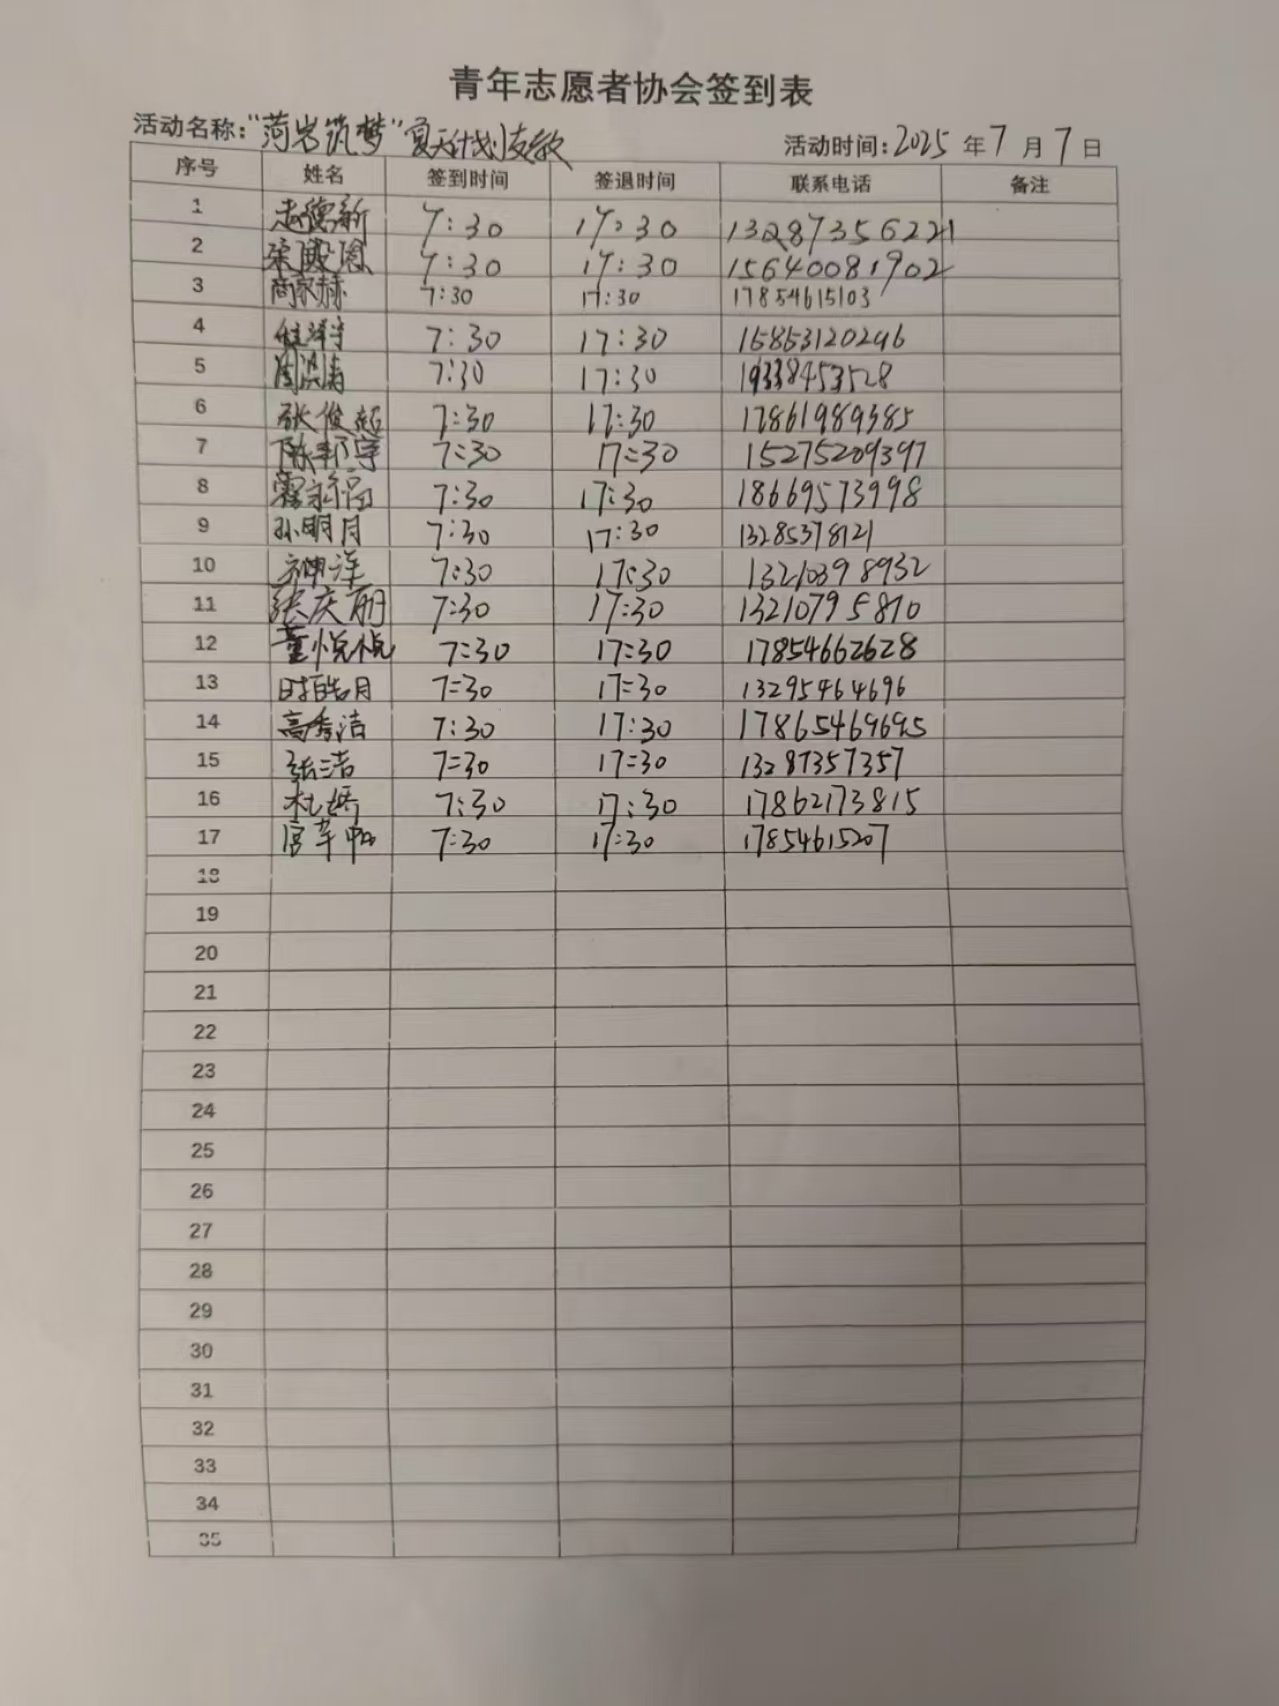 青年志愿者协会签到表
活动名称："菏岩筑梦"夏天计划支教 活动时间：2025 年 7 月 7 日
序号 姓名 签到时间 签退时间 联系电话 备注
1 赵德新 7:30 17:30 13287356221
2 7:30 17:30 15640081902
3 商家赫 7:30 17:30 17854615103
4 7:30 17:30 15853120246
5 周洪涛 7:30 17:30 19338453528
6 张俊超 7:30 17:30 17861989385
7 陈邦宇 7:30 17:30 15275209397
8 7:30 17:30 18669573998
9 孙明月 7:30 17:30 13285378121
10 7:30 17:30 13210398932
11 张庆丽 7:30 17:30 13210795870
12 董悦悦 7:30 17:30 17854662628
13 时皓月 7:30 17:30 13295464696
14 高秀洁 7:30 17:30 17865469695
15 张洁 7:30 17:30 13287357357
16 杜娇 7:30 17:30 17862173815
17 7:30 17:30 17854615207
18
19
20
21
22
23
24
25
26
27
28
29
30
31
32
33
34
35